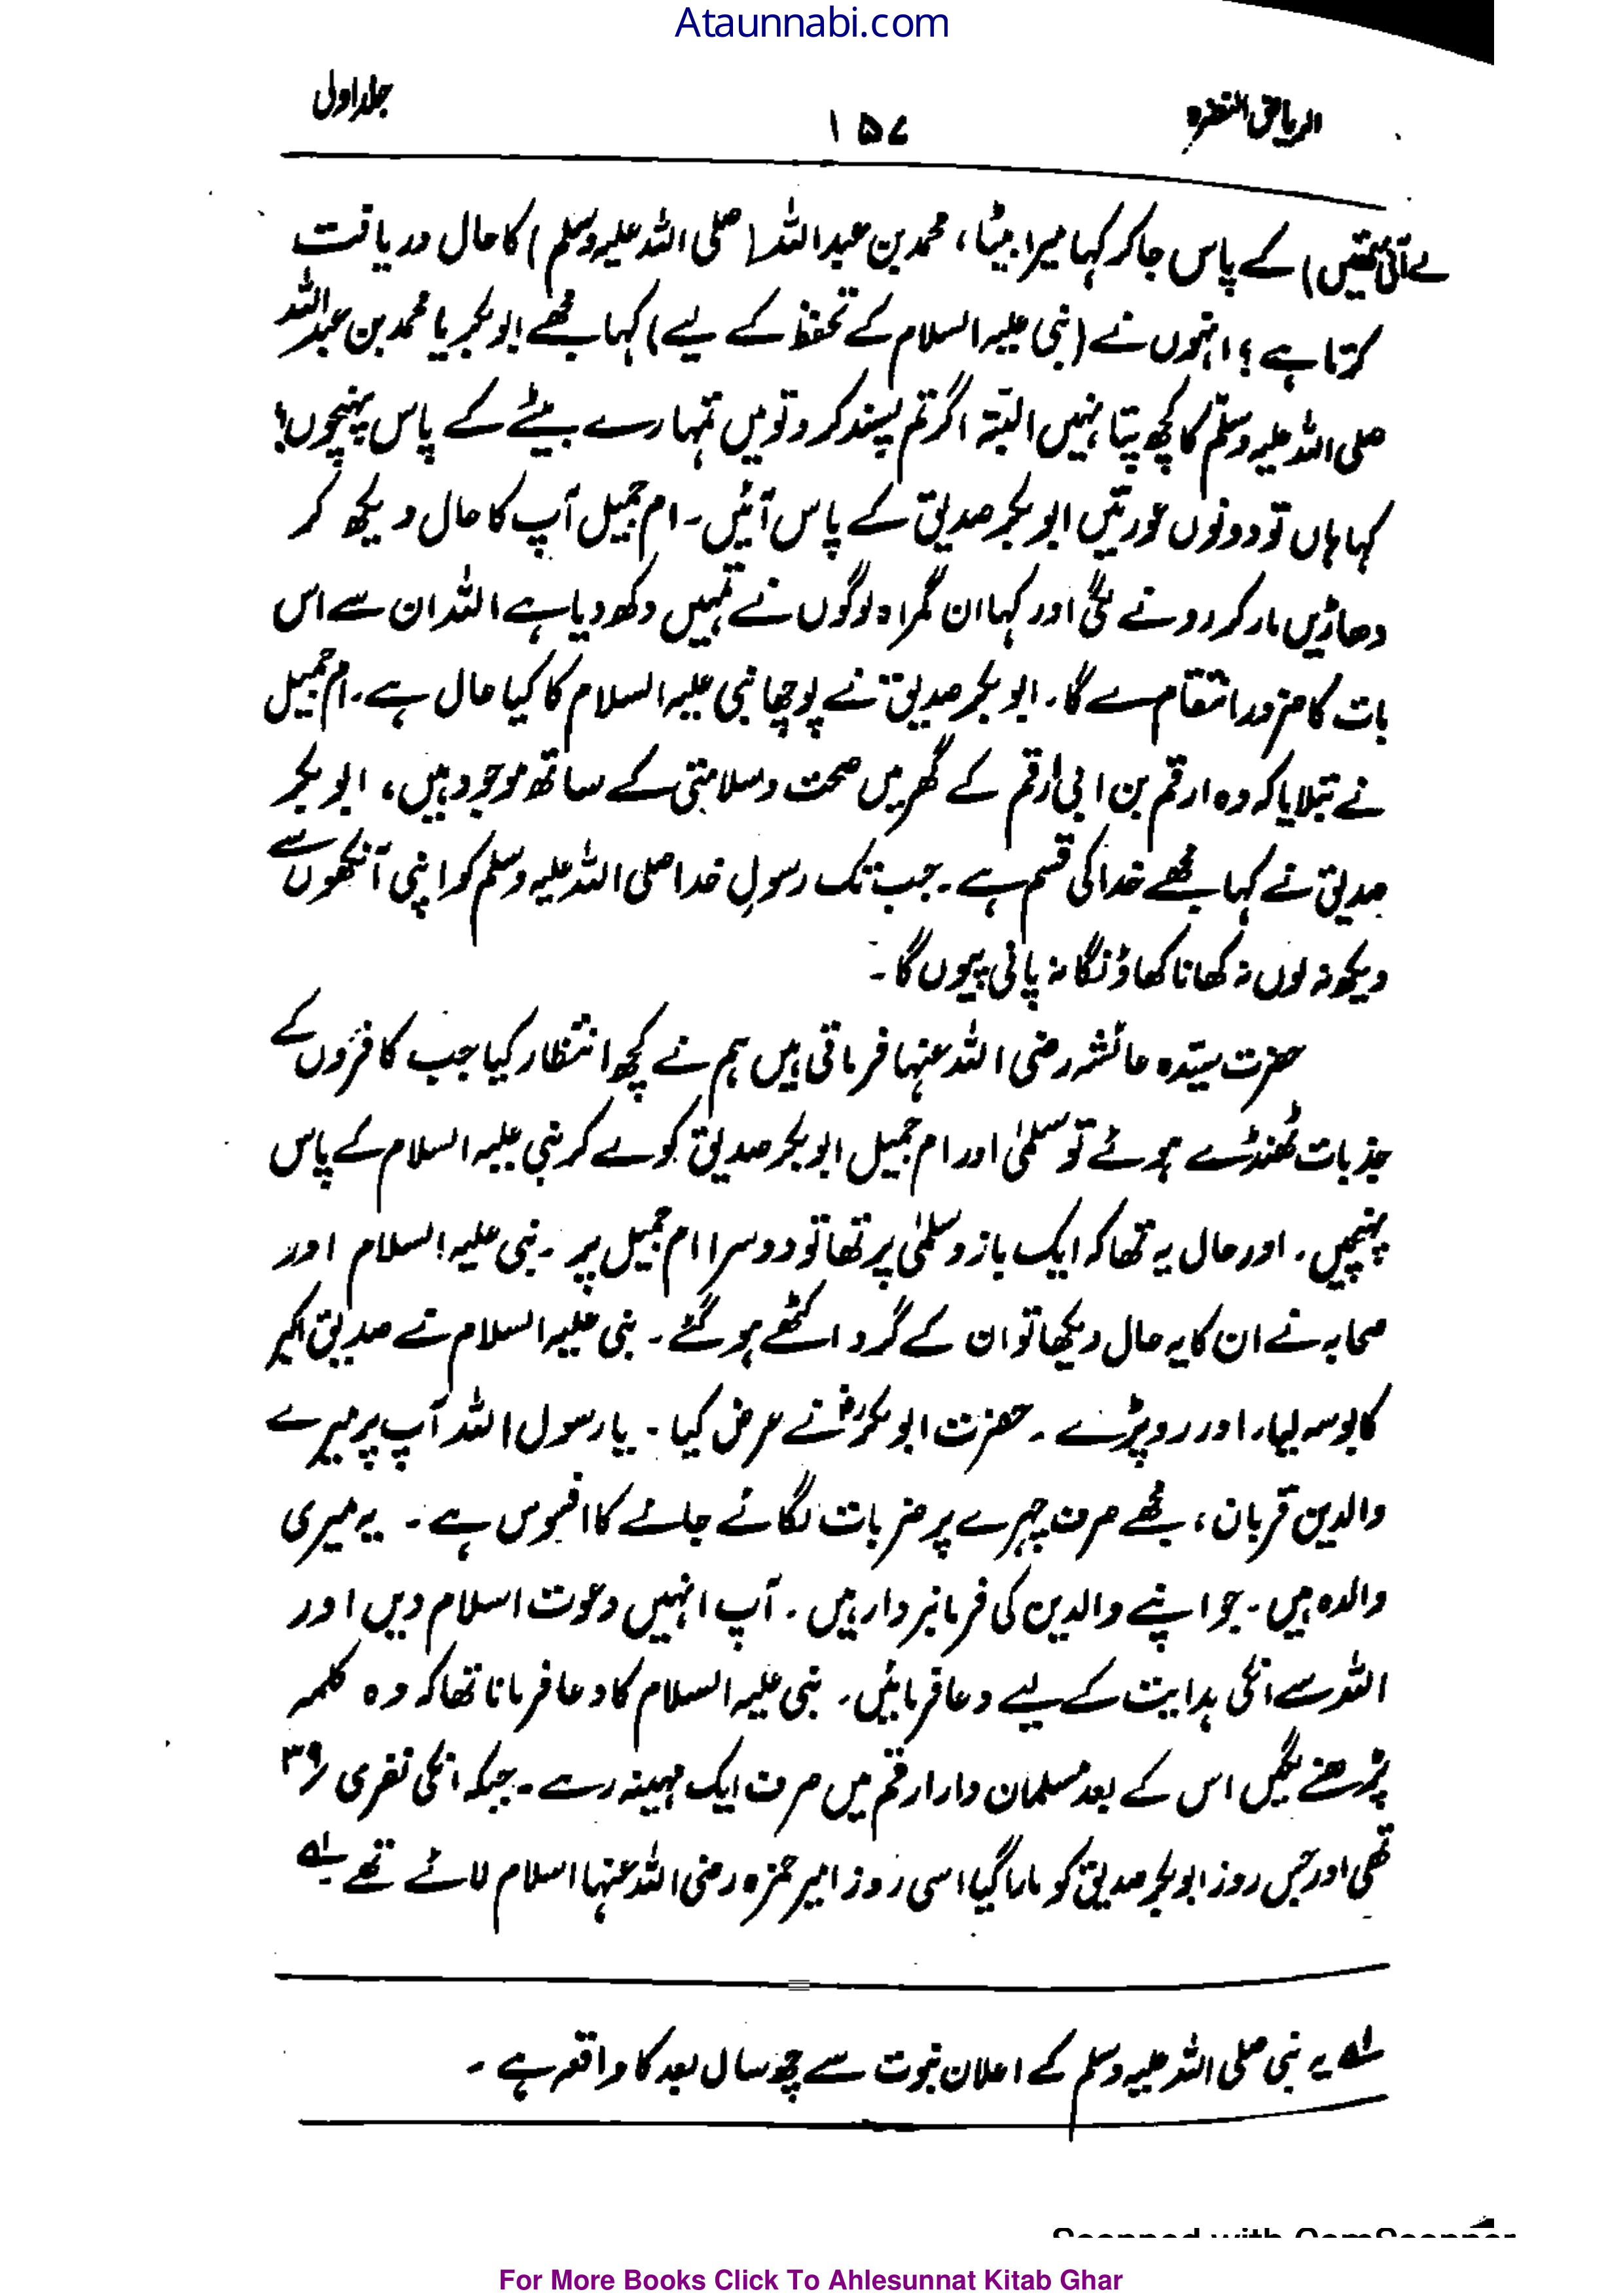 Ataunnabi.com
الریاض النضرہ ۱۵۷ جلد اول
لے آئی تھیں) کے پاس جا کر کہا میرا بیٹا، محمد بن عبداللہ (صلی اللہ علیہ وسلم) کا حال دریافت
کرتا ہے؟ انہوں نے (نبی علیہ السلام کے تحفظ کے لیے) کہا مجھے ابو بکر یا محمد بن عبداللہ
صلی اللہ علیہ وسلّم کا کچھ پتا نہیں البتہ اگر تم پسند کرو تو میں تمہارے بیٹے کے پاس پہنچوں؟
کہا ہاں تو دونوں عورتیں ابو بکر صدیق کے پاس آئیں۔ ام جمیل آپ کا حال دیکھ کر
دھاڑیں مار کر رونے لگی اور کہا ان گمراہ لوگوں نے تمہیں دکھ دیا ہے اللہ ان سے اس
بات کا ضرور انتقام لے گا۔ ابو بکر صدیق نے پوچھا نبی علیہ السلام کا کیا حال ہے۔ ام جمیل
نے بتلایا کہ وہ ارقم بن ابی ارقم کے گھر میں صحت و سلامتی کے ساتھ موجود ہیں، ابو بکر
صدیق نے کہا مجھے خدا کی قسم ہے۔ جب تک رسولِ خدا صلی اللہ علیہ وسلم کو اپنی آنکھوں سے
دیکھ نہ لوں نہ کھانا کھاؤنگا نہ پانی پیوں گا۔
حضرت سیّدہ عائشہ رضی اللہ عنہا فرماتی ہیں ہم نے کچھ انتظار کیا جب کافروں کے
جذبات ٹھنڈے ہوئے تو سلمٰی اور ام جمیل ابو بکر صدیق کو لے کر نبی علیہ السلام کے پاس
پہنچیں۔ اور حال یہ تھا کہ ایک بازو سلمٰی پر تھا تو دوسرا ام جمیل پر۔ نبی علیہ السلام اور
صحابہ نے ان کا یہ حال دیکھا تو ان کے گرد اکٹھے ہو گئے۔ نبی علیہ السلام نے صدیق اکبر
کا بوسہ لیا، اور رو پڑے۔ حضرت ابو بکرؓ نے عرض کیا۔ یا رسول اللہ آپ پر میرے
والدین قربان، مجھے صرف چہرے پر ضربات لگائے جانے کا افسوس ہے۔ یہ میری
والدہ ہیں۔ جو اپنے والدین کی فرمانبردار ہیں۔ آپ انہیں دعوت اسلام دیں اور
اللہ سے انکی ہدایت کے لیے دعا فرمائیں۔ نبی علیہ السلام کا دعا فرمانا تھا کہ وہ کلمہ
پڑھنے لگیں اس کے بعد مسلمان دار ارقم میں صرف ایک مہینہ رہے۔ جبکہ انکی نفری ۳۹
تھی اور جس روز ابو بکر صدیق کو مارا گیا اسی روز امیر حمزہ رضی اللہ عنہا اسلام لائے تھے لے
لے یہ نبی صلی اللہ علیہ وسلم کے اعلان نبوت سے چھ سال بعد کا واقعہ ہے۔
Scanned with CamScanner
For More Books Click To Ahlesunnat Kitab Ghar